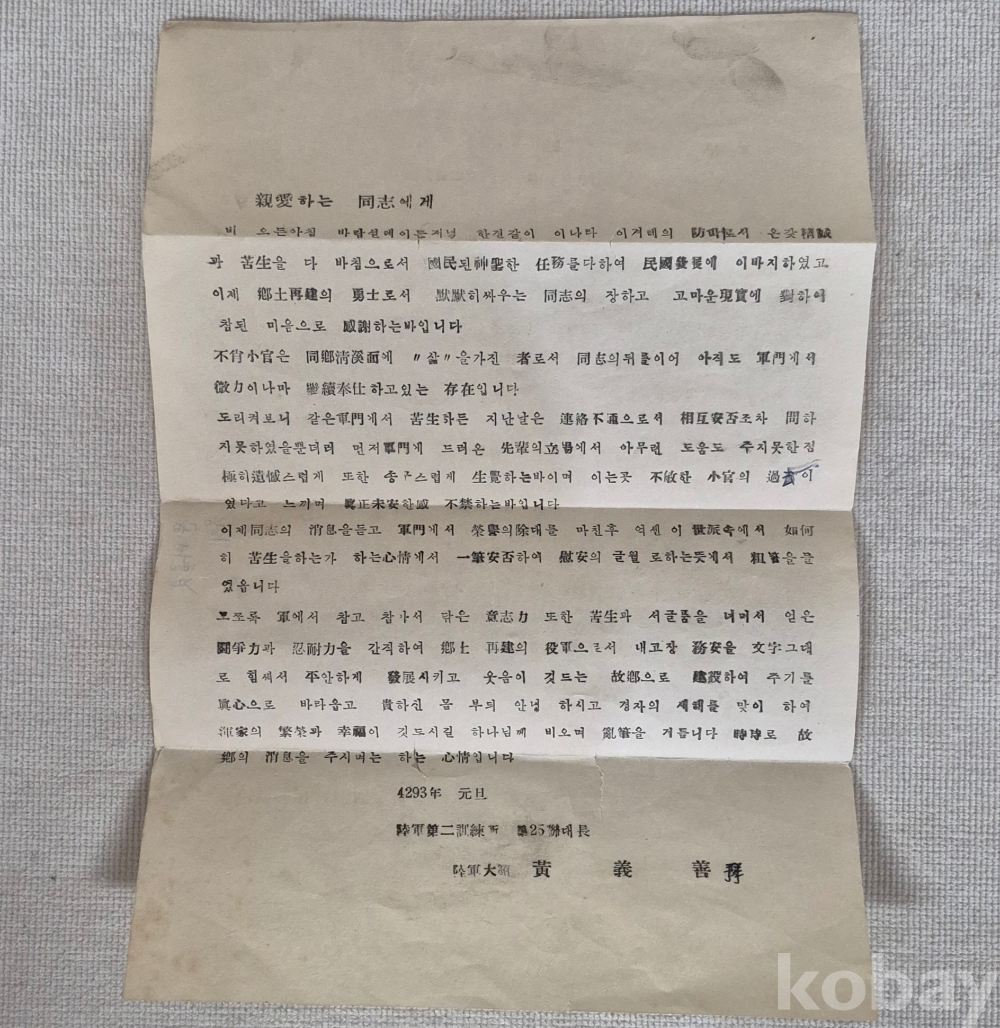 親愛하는 同志에게
비 오는아침 바람설레이든저녁 한결같이 이나라 이겨레의 防파로서 온갖精誠
과 苦生을 다 바침으로서 國民된神聖한 任務를다하여 民國發展에 이바지하였고
이제 鄕土再建의 勇士로서 默默히싸우는 同志의 장하고 고마운現實에 對하여
참된 마음으로 感謝하는바입니다
不肖小官은 同鄕淸溪面에 "삶"을가진 者로서 同志의뒤를이어 아직도 軍門에서
微力이나마 繼續奉仕하고있는 存在입니다
도리켜보니 같은軍門에서 苦生하든 지난날은 連絡不通으로서 相互安否조차 問하
지못하였을뿐더러 먼저軍門에 드러온 先輩의立場에서 아무런 도움도 주지못한점
極히遺憾스럽게 또한 송구스럽게 生覺하는바이며 이는곳 不敏한 小官의 過去이
였다고 느끼며 眞正未安한感 不禁하는바입니다
이제同志의 消息을듣고 軍門에서 榮譽의除隊를 마친후 억센 이世派속에서 如何
히 苦生을하는가 하는心情에서 一筆安否하여 慰安의 글월 로하는뜻에서 粗筆을들
였읍니다
모쪼록 軍에서 참고 참가서 닦은 意志力 또한 苦生과 서글픔을 너머서 얻은
鬪爭力과 忍耐力을 간직하여 鄕土 再建의 役軍으로서 내고장 務安을 文字그대
로 힘써서 平安하게 發展시키고 웃음이 깃드는 故鄕으로 建設하여 주기를
眞心으로 바라옵고 貴하신 몸 부듸 안녕 하시고 경자의 새해를 맞이 하여
渾家의 繁榮과 幸福이 깃드시길 하나님께 비오며 亂筆을 거둡니다 時時로 故
鄕의 消息을 주시며는 하는 心情입니다
4293年 元旦
陸軍第二訓練所 第25聯대長
陸軍大領 黃 義 善 拜
kobay